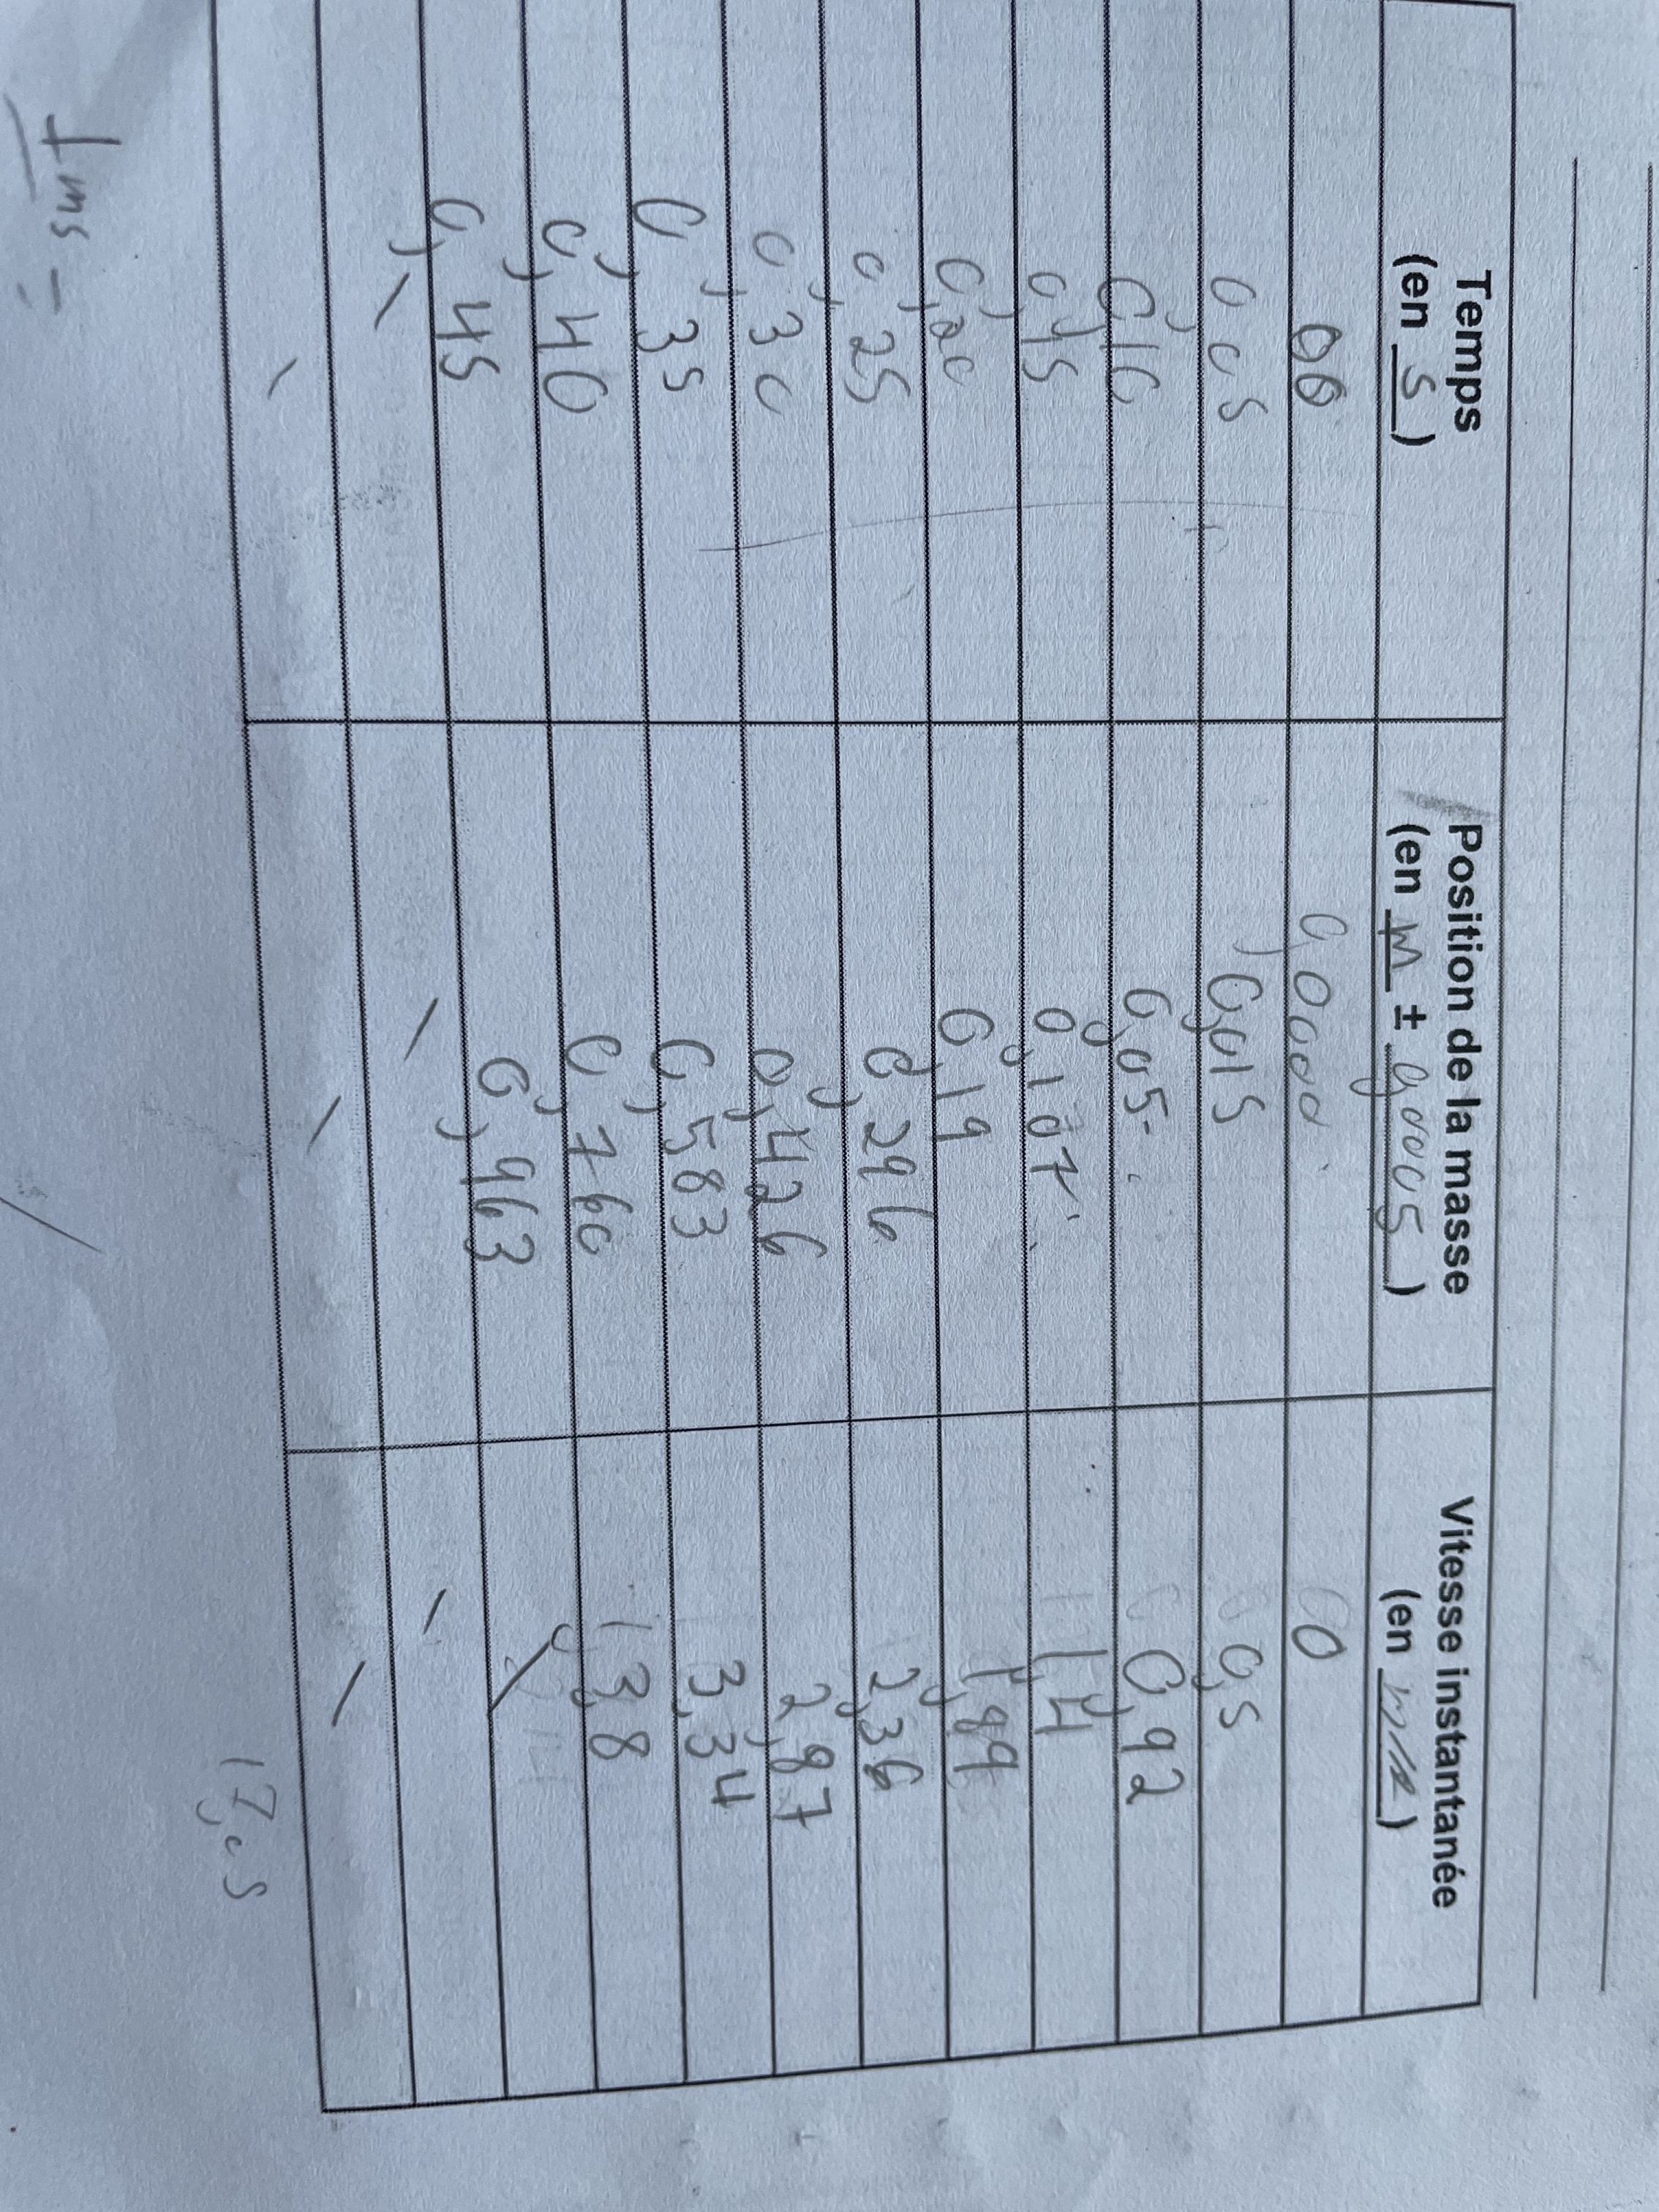 Temps (en s) Position de la masse (en m ± 0,0005) Vitesse instantanée (en m/s)
00 0,0000 0
0,05 0,015 0,5
0,10 0,05 0,92
0,15 0,107 1,4
0,20 0,19 1,89
0,25 0,296 2,36
0,30 0,426 2,87
0,35 0,583 3,34
0,40 0,760 1,38
0,45 0,963
17,05